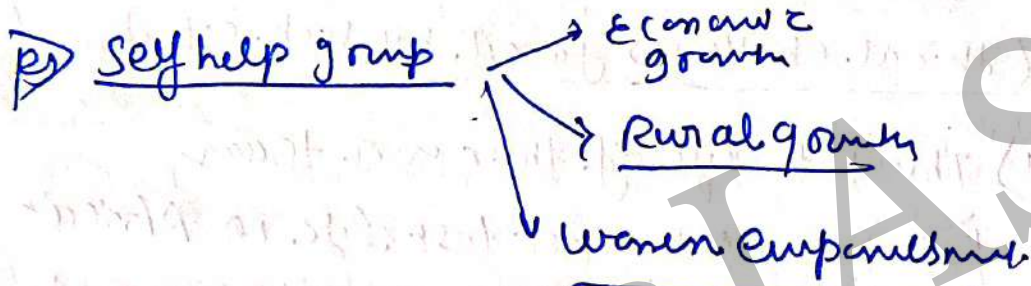 Self help group
Economic
growth
Rural growth
Women Empowerment
IAS